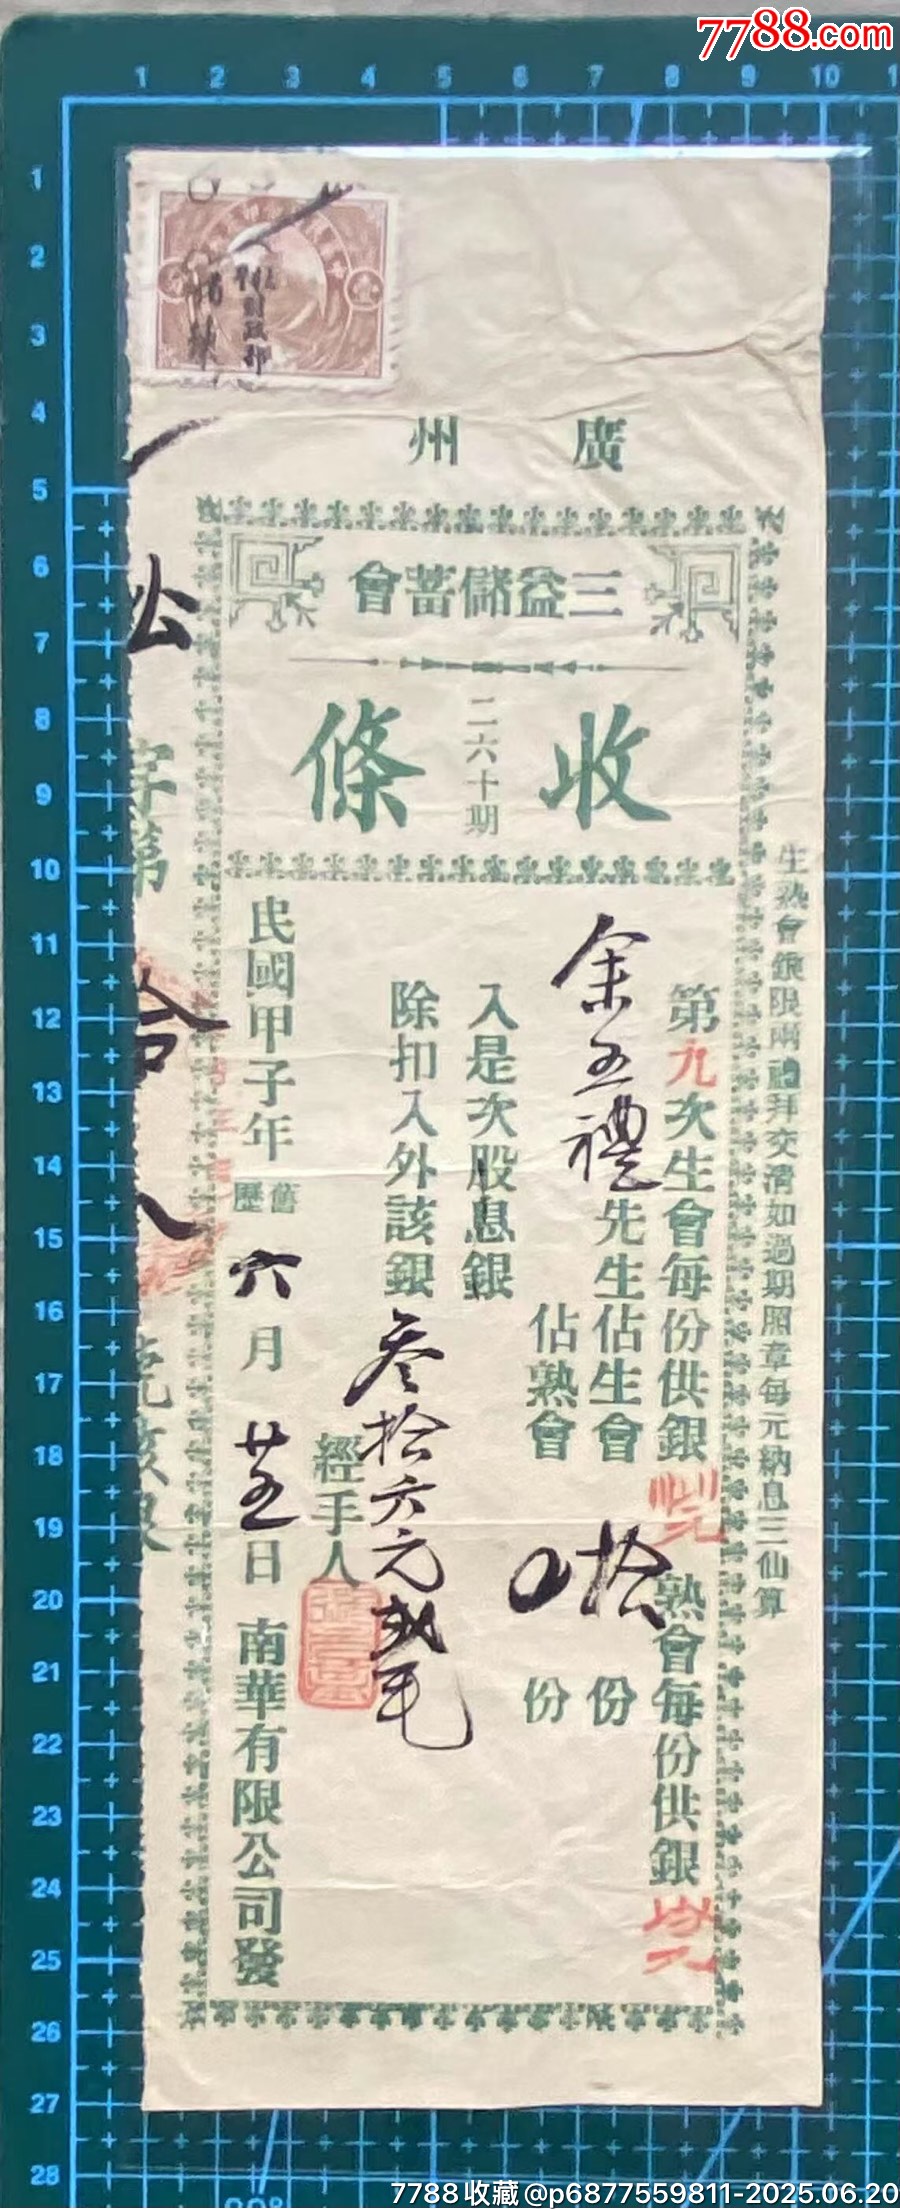 7788.com
廣州
三益儲蓄會
收條
二六十期
生熟會銀限兩禮拜交清如過期照章每元納息三仙算
第九次生會每份供銀 熟會每份供銀
余五禮先生佔生會 拾 份
佔熟會 份
入是次股息銀
除扣入外該銀叁拾六元弍毛
經手人
民國甲子年舊歷六月廿五日 南華有限公司發
字第
財政部
7788收藏@p6877559811-2025.06.20